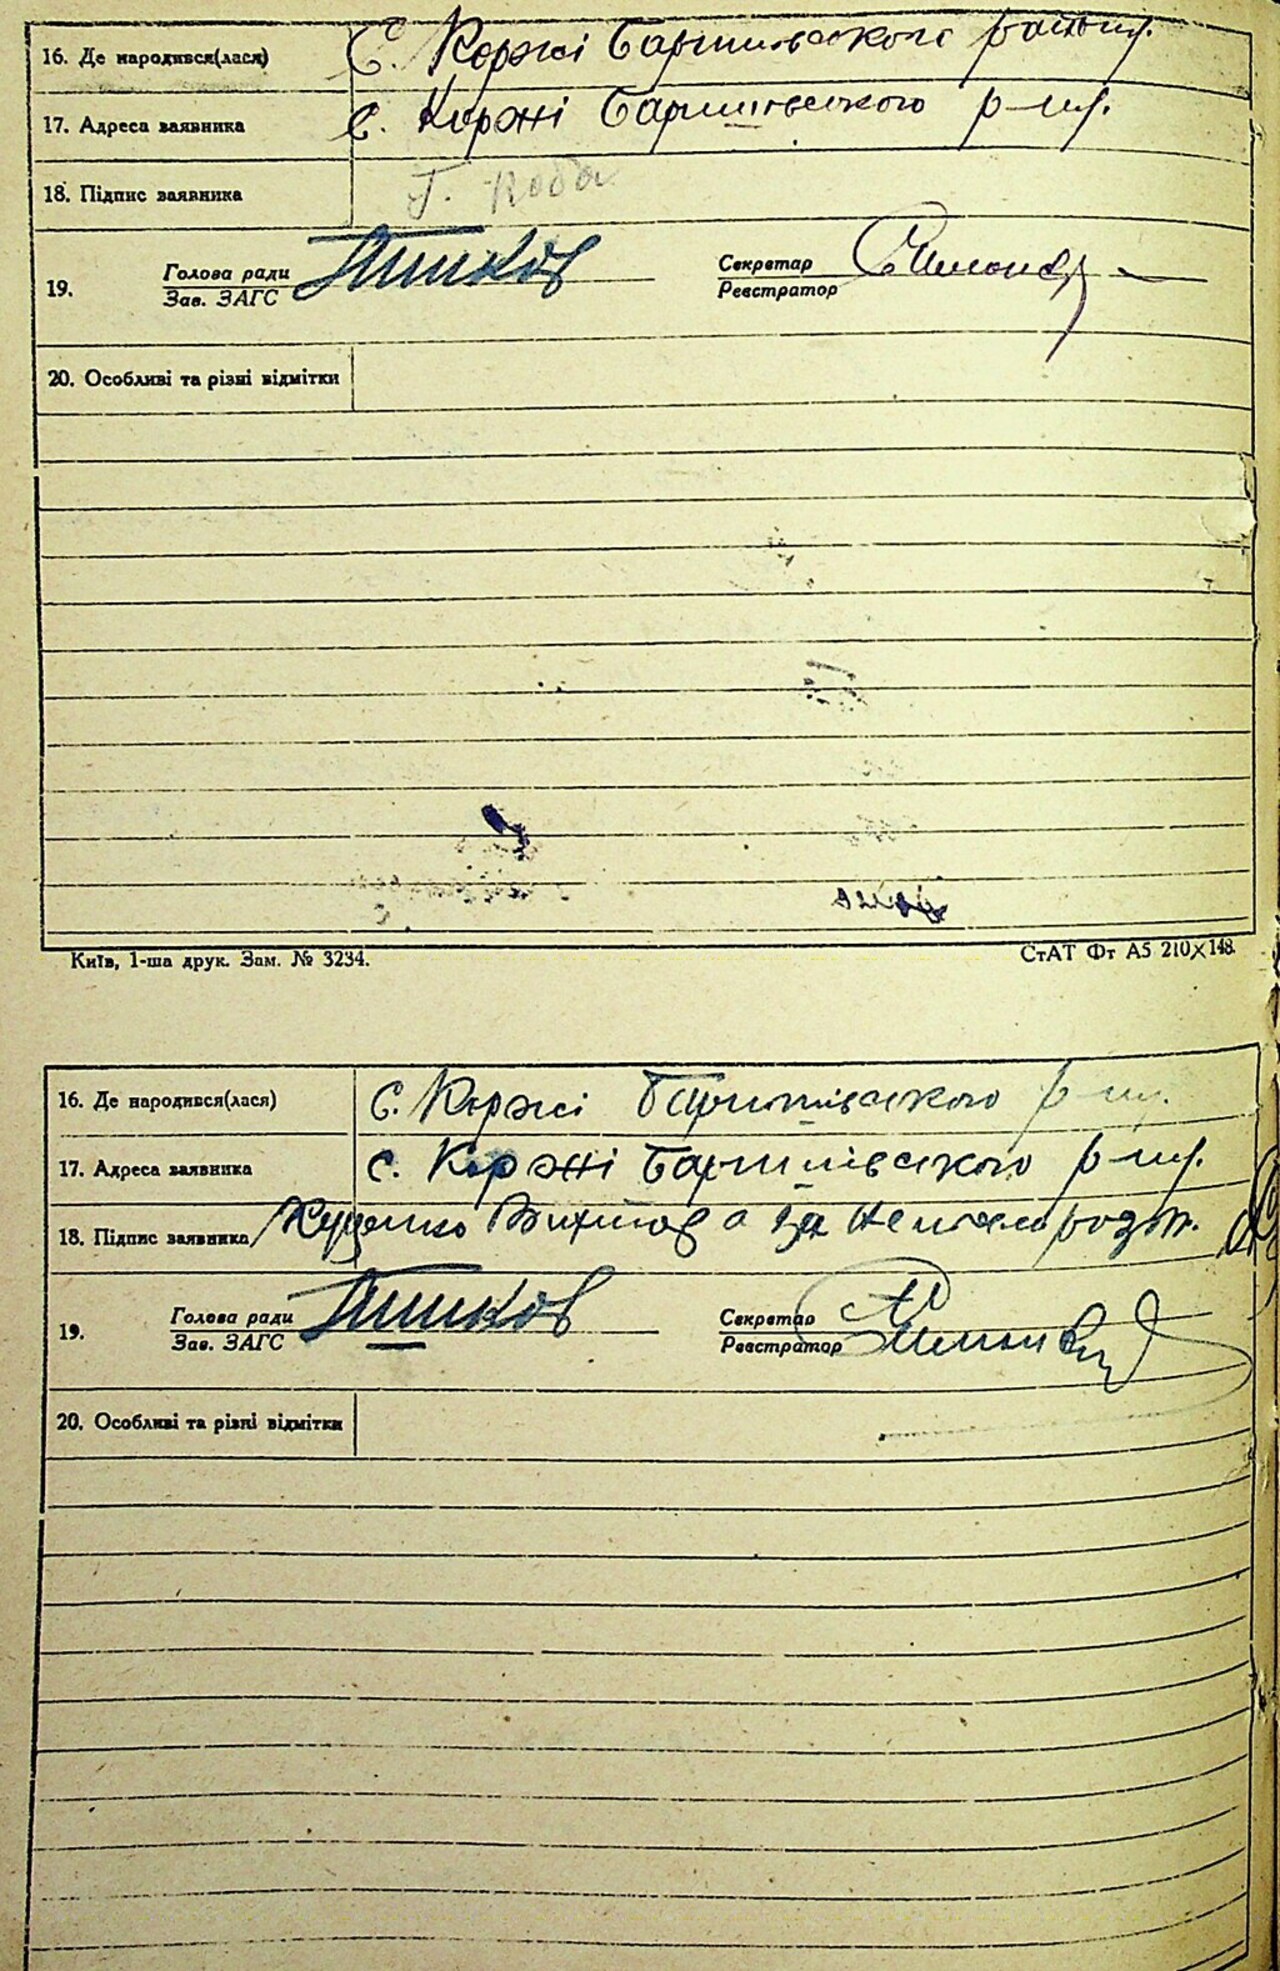 16. Де народився(лася) С. Коржі Баришівського району.
17. Адреса заявника С. Коржі Баришівського р-ну.
18. Підпис заявника Г. Коба
19. Голова ради
Зав. ЗАГС
Секретар
Реєстратор
20. Особливі та різні відмітки
Київ, 1-ша друк. Зам. № 3234.
СтАТ Фт А5 210×148.
16. Де народився(лася) с. Коржі Баришівського р-ну.
17. Адреса заявника с. Коржі Баришівського р-ну.
18. Підпис заявника за
19. Голова ради
Зав. ЗАГС
Секретар
Реєстратор
20. Особливі та різні відмітки